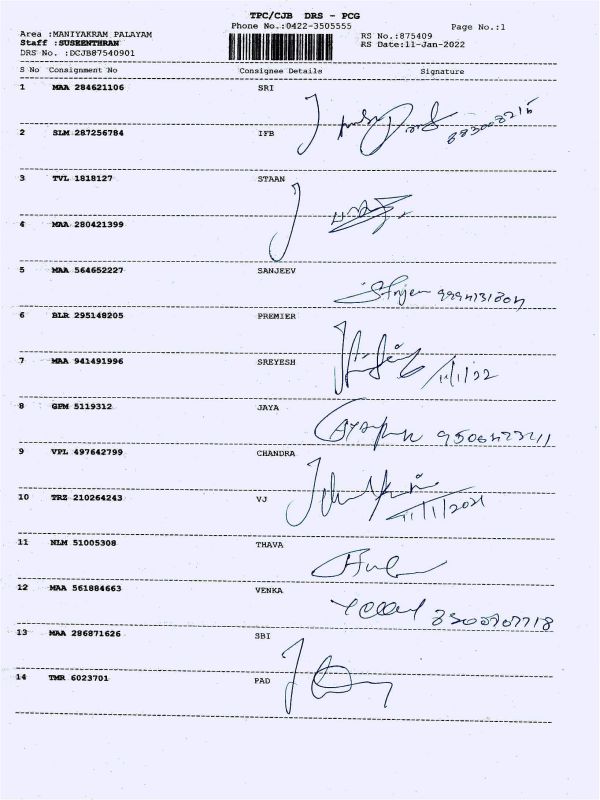 TPC/CJB DRS - PCG
Phone No.:0422-3505555
Page No.:1
Area :MANIYAKRAM PALAYAM
Staff :SUSEENTHRAN
DRS No. :DCJB87540901
RS No.:875409
RS Date:11-Jan-2022
S No Consignment No Consignee Details Signature
1 MAA 284621106 SRI
2 SLM 287256784 IFB
3 TVL 1818127 STAAN
4 MAA 280421399
5 MAA 564652227 SANJEEV
6 BLR 295148205 PREMIER
7 MAA 941491996 SREYESH
11/1/22
8 GPM 5119312 JAYA
9 VPL 497642799 CHANDRA
10 TRZ 210264243 VJ
11/1/2021
11 NLM 51005308 THAVA
12 MAA 561884663 VENKA
13 MAA 286871626 SBI
14 TMR 6023701 PAD